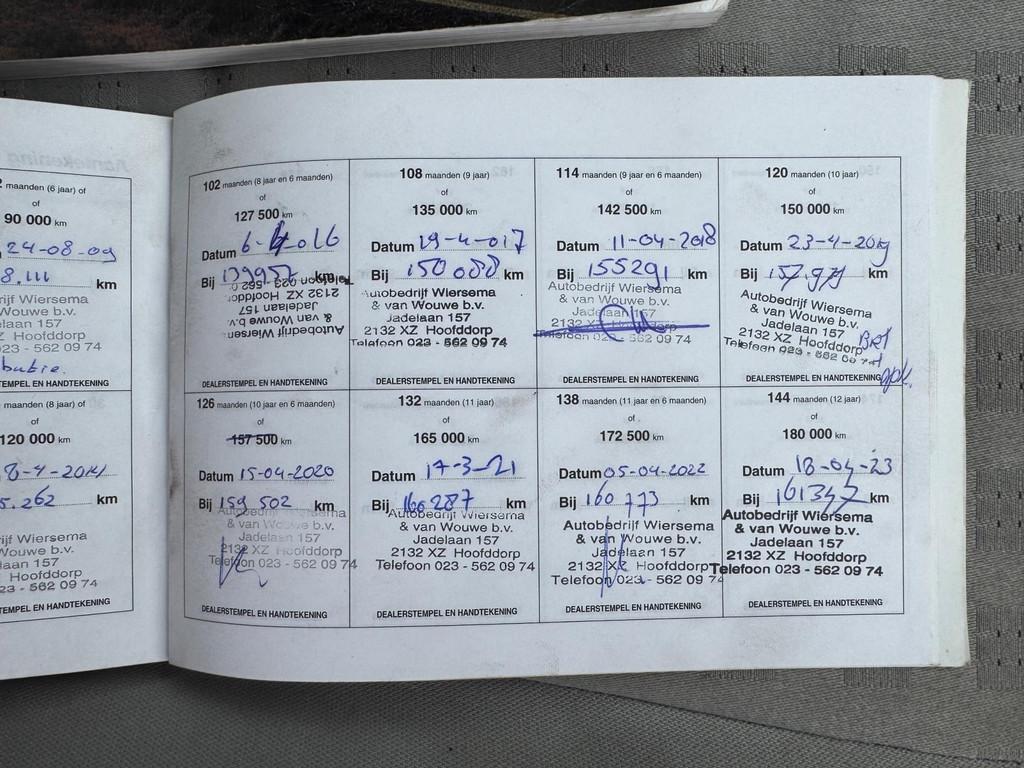 Aantekening
maanden (6 jaar) of
90 000 km
24-08-09
8.111 km
Wiersema
Wouwe b.v.
Jadelaan 157
XZ Hoofddorp
023 - 562 09 74
DEALERSTEMPEL EN HANDTEKENING
maanden (8 jaar) of
120 000 km
8-4-2014
5.262 km
Wiersema
Wouwe b.v.
157
XZ Hoofddorp
023 - 562 09 74
DEALERSTEMPEL EN HANDTEKENING
102 maanden (8 jaar en 6 maanden)
of
127 500 km
Datum
Bij 139957 km
Autobedrijf Wiersema
& van Wouwe b.v.
Jadelaan 157
2132 XZ Hoofddorp
Telefoon 023 - 562 0
DEALERSTEMPEL EN HANDTEKENING
108 maanden (9 jaar)
of
135 000 km
Datum 19-4-017
Bij 150088 km
Autobedrijf Wiersema
& van Wouwe b.v.
Jadelaan 157
2132 XZ Hoofddorp
Telefoon 023 - 562 09 74
DEALERSTEMPEL EN HANDTEKENING
114 maanden (9 jaar en 6 maanden)
of
142 500 km
Datum 11-04-2018
Bij 155291 km
Autobedrijf Wiersema
& van Wouwe b.v.
Jadelaan 157
2132 Hoofddorp
Telefoon 023 - 562 09 74
DEALERSTEMPEL EN HANDTEKENING
120 maanden (10 jaar)
of
150 000 km
Datum 23-4-2019
Bij 157.979 km
Autobedrijf Wiersema
& van Wouwe b.v.
Jadelaan 157
2132 XZ Hoofddorp
Telefoon 023 - 562 09 74
DEALERSTEMPEL EN HANDTEKENING
126 maanden (10 jaar en 6 maanden)
of
157 500 km
Datum 15-04-2020
Bij 159 502 km
Autobedrijf Wiersema
& van Wouwe b.v.
Jadelaan 157
2132 XZ Hoofddorp
Telefoon 023 - 562 09 74
DEALERSTEMPEL EN HANDTEKENING
132 maanden (11 jaar)
of
165 000 km
Datum 17-3-21
Bij 160287 km
Autobedrijf Wiersema
& van Wouwe b.v.
Jadelaan 157
2132 XZ Hoofddorp
Telefoon 023 - 562 09 74
DEALERSTEMPEL EN HANDTEKENING
138 maanden (11 jaar en 6 maanden)
of
172 500 km
Datum 05-04-2022
Bij 160 773 km
Autobedrijf Wiersema
& van Wouwe b.v.
Jadelaan 157
2132 XZ Hoofddorp
Telefoon 023 - 562 09 74
DEALERSTEMPEL EN HANDTEKENING
144 maanden (12 jaar)
of
180 000 km
Datum 18-04-23
Bij 161347 km
Autobedrijf Wiersema
& van Wouwe b.v.
Jadelaan 157
2132 XZ Hoofddorp
Telefoon 023 - 562 09 74
DEALERSTEMPEL EN HANDTEKENING